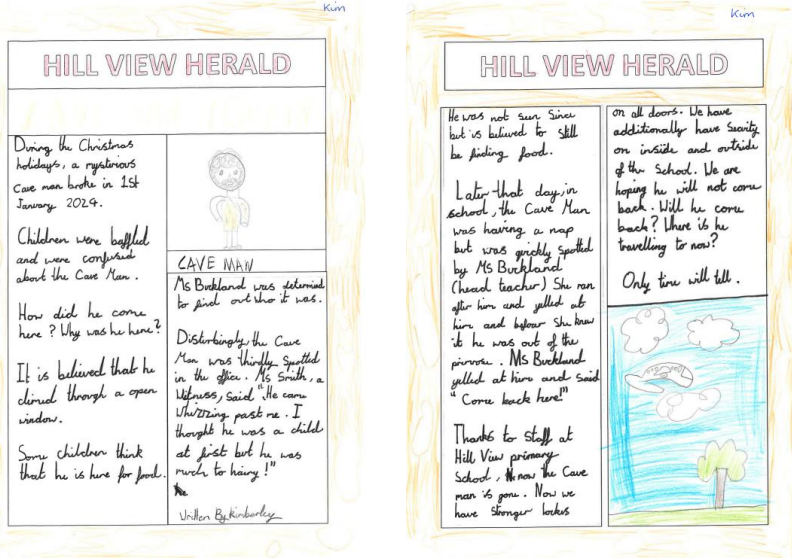 Kim
HILL VIEW HERALD
During the Christmas
holidays, a mysterious
cave man broke in 1st
January 2024.
Children were baffled
and were confused
about the Cave Man.
How did he come
here? Why was he here?
It is believed that he
climed through a open
window.
Some children think
that he is here for food.
CAVE MAN
Ms Buckland was determind
to find out who it was.
Disturbingly, the Cave
Man was thirdly spotted
in the office. Ms Smith, a
Witness, said "He came
whizzing past me. I
thought he was a child
at first but he was
much to hairy!"
Written By Kimberley
Kim
HILL VIEW HERALD
He was not seen Since
but is believed to still
be finding food.
Later that day, in
school, the Cave Man
was having a nap
but was quickly spotted
by Ms Buckland
(head teacher) She ran
after him and yelled at
him and before She knew
it he was out of the
. Ms Buckland
yelled at him and said
"Come back here!"
Thanks to Staff at
Hill View primary
School, now the Cave
man is gone. Now we
have stronger lockes
on all doors. We have
additionally have Seacity
on inside and outside
of the School. We are
hoping he will not come
back. Will he come
back? Where is he
travelling to now?
Only time will tell.